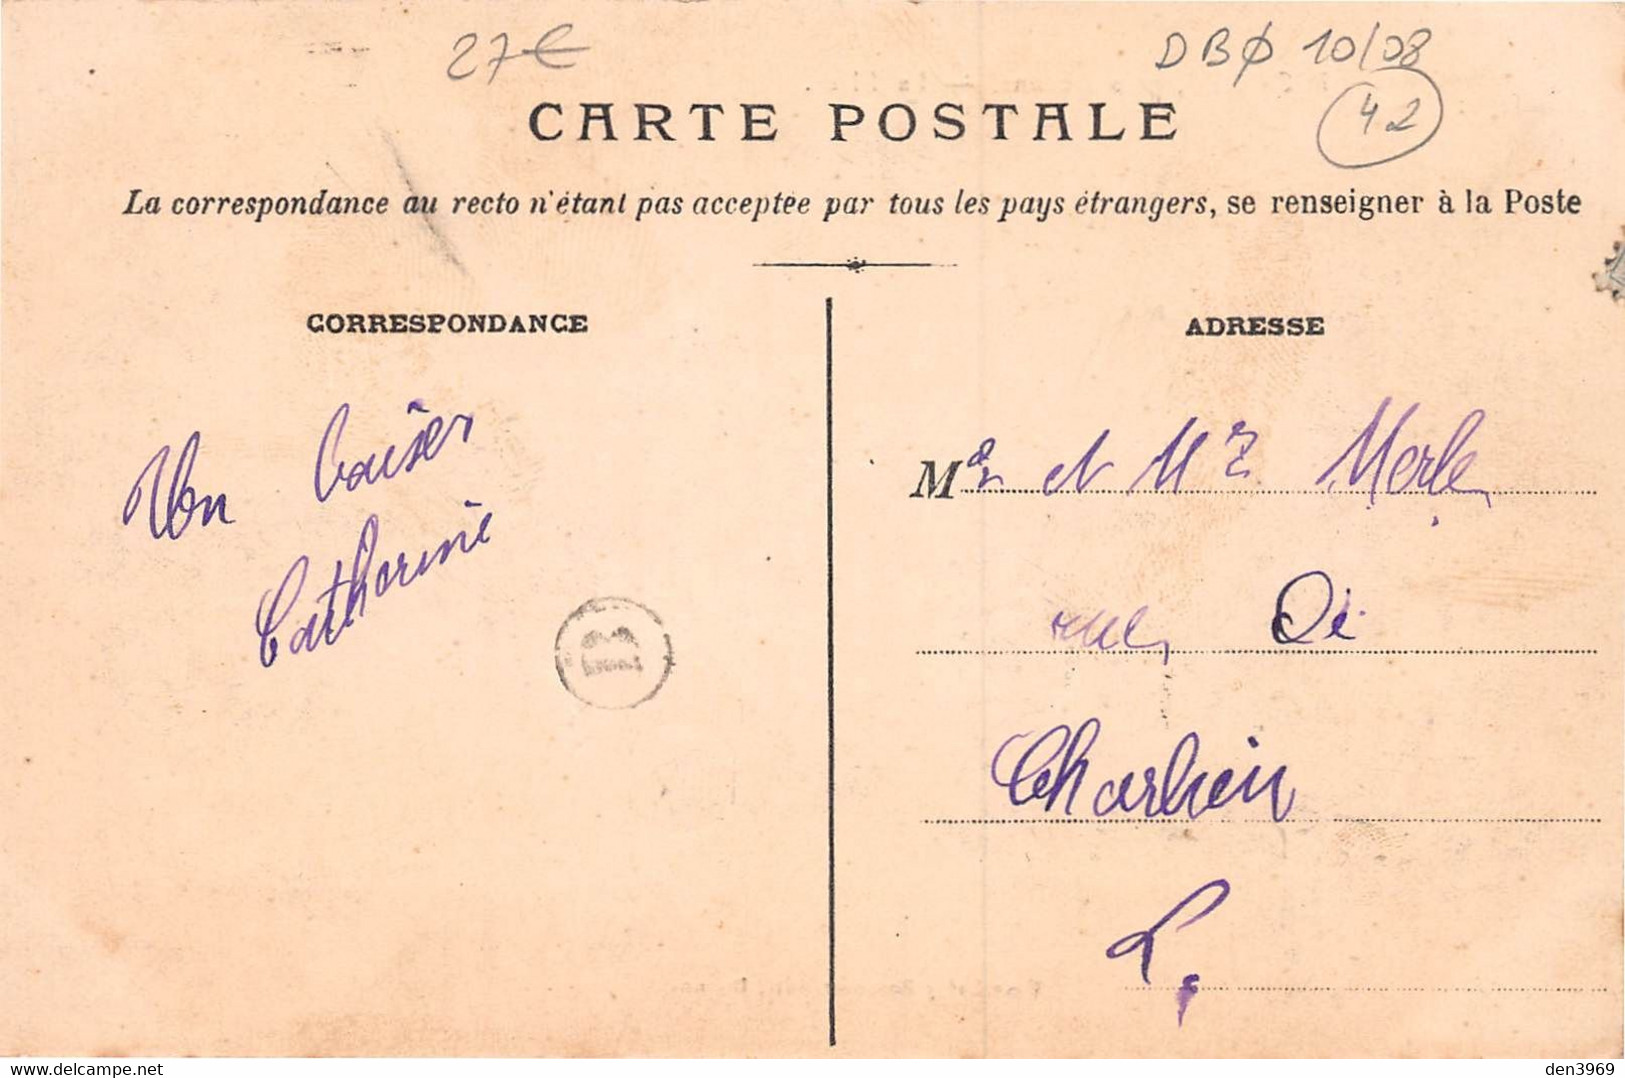 27€
DBØ 10/08
42
CARTE POSTALE
La correspondance au recto n'étant pas acceptée par tous les pays étrangers, se renseigner à la Poste
CORRESPONDANCE
ADRESSE
Un baiser
Catherine
B
M et Mr Merle
Charlieu
L
delcampe.net
den3969